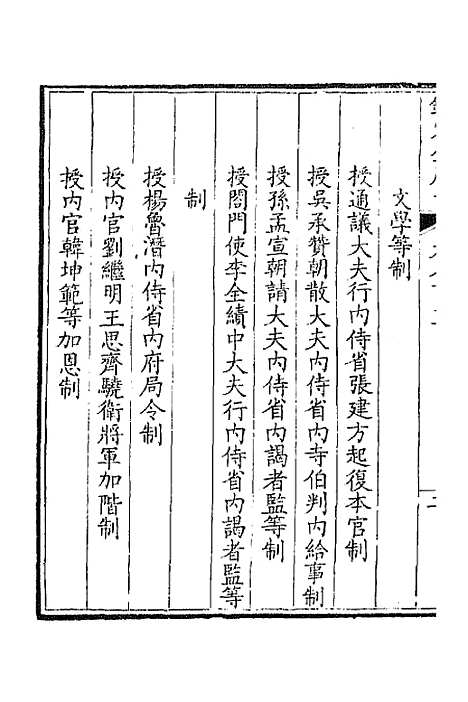 文學等制
授通議大夫行内侍省張建方起復本官制
授吳承贊朝散大夫内侍省内寺伯判内給事制
授孫孟宣朝請大夫内侍省内謁者監等制
授閤門使李全績中大夫行内侍省内謁者監等
制
授楊魯潛内侍省内府局令制
授内官劉繼明王思齊驍衛將軍加階制
授内官韓坤範等加恩制